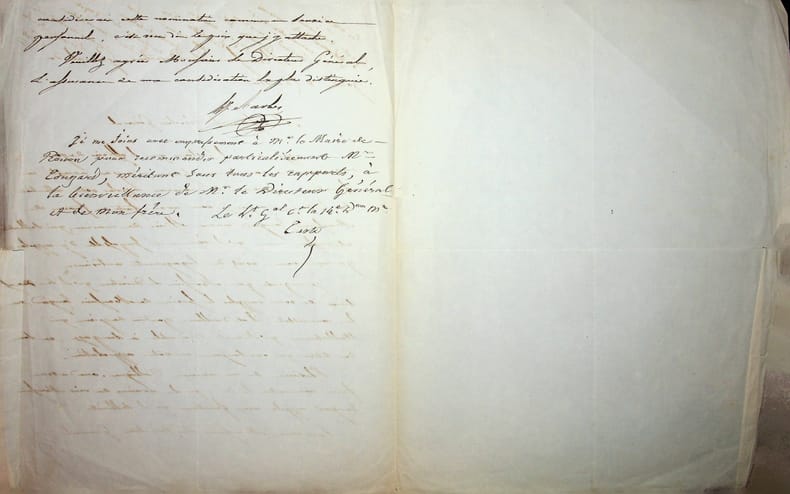 considérerai cette nomination comme un service
personnel, et de vous dire le prix que j'y attache.
Veuillez agréer Monsieur le Directeur Général,
L'assurance de ma considération la plus distinguée.
Je me joins avec empressement à Mr. le Maire de
pour recommander particulièrement Mr
, méritant sous tous les rapports, à
la bienveillance de Mr. le Directeur Général
et de mon frère. Le Lt. Gal Ct. la 14e. Don Mre